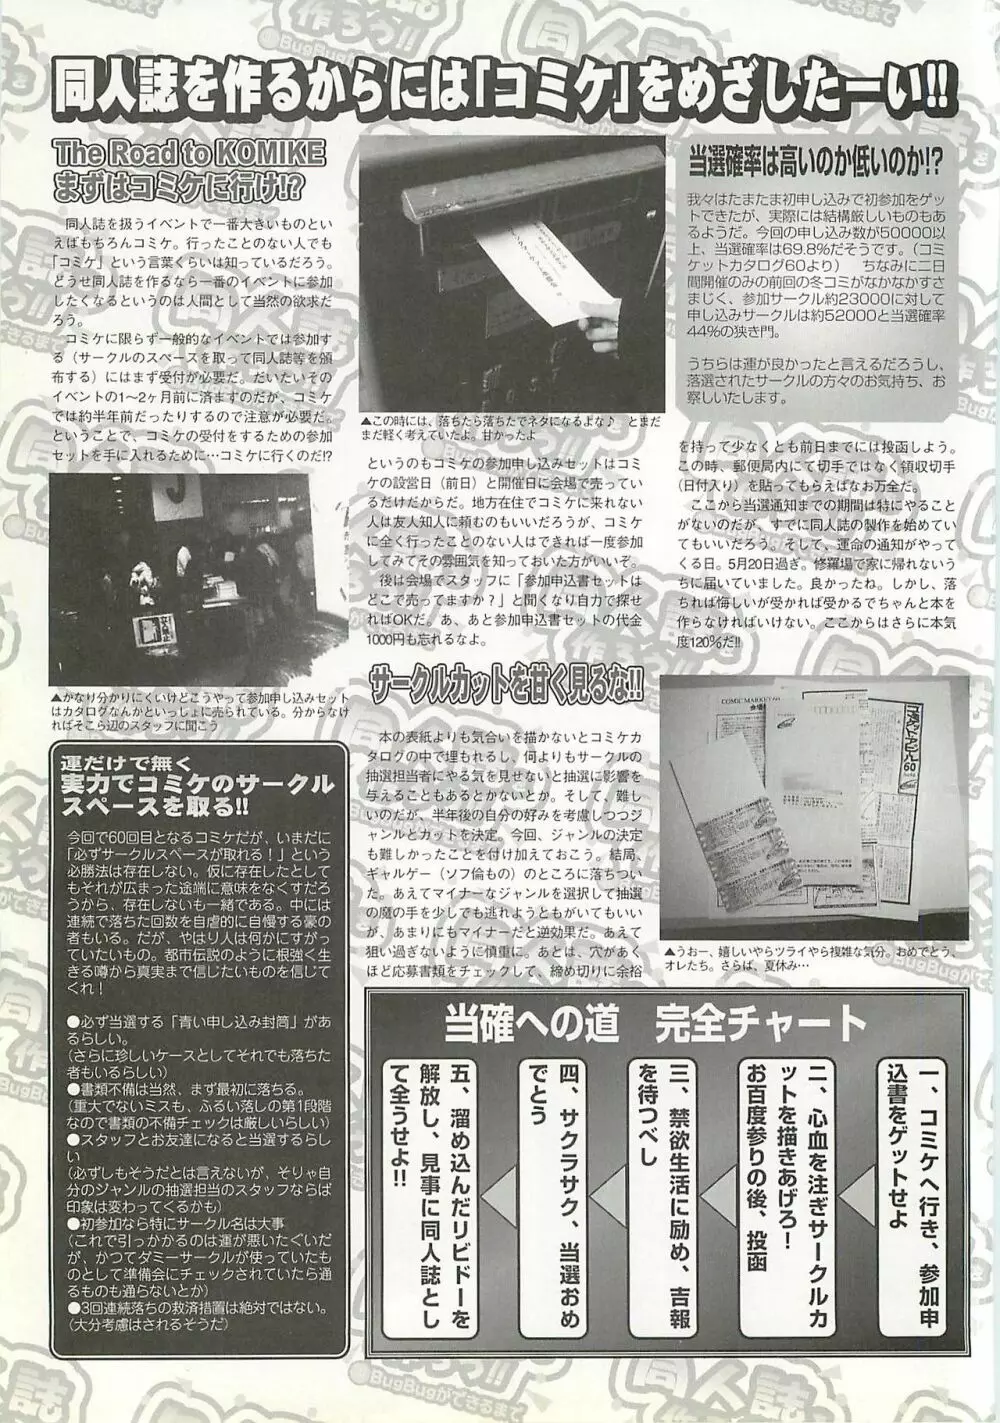 同人誌を作るからには「コミケ」をめざしたーい!!
The Road to KOMIKE
まずはコミケに行け!?
　同人誌を扱うイベントで一番大きいものとい
えばもちろんコミケ。行ったことのない人でも
「コミケ」という言葉くらいは知っているだろう。
どうせ同人誌を作るなら一番のイベントに参加
したくなるというのは人間として当然の欲求だ
ろう。
　コミケに限らず一般的なイベントでは参加す
る（サークルのスペースを取って同人誌等を頒
布する）にはまず受付が必要だ。だいたいその
イベントの1〜2ヶ月前に済ますのだが、コミケ
では約半年前だったりするので注意が必要だ。
ということで、コミケの受付をするための参加
セットを手に入れるために…コミケに行くのだ!?
▲かなり分かりにくいけどこうやって参加申し込みセット
はカタログなんかといっしょに売られている。分からなけ
ればそこら辺のスタッフに聞こう
▲この時には、落ちたら落ちたでネタになるよな♪　とまだ
まだ軽く考えていたよ。甘かったよ
というのもコミケの参加申し込みセットはコミ
ケの設営日（前日）と開催日に会場で売って
いるだけだからだ。地方在住でコミケに来れない
人は友人知人に頼むのもいいだろうが、コミケ
に全く行ったことのない人はできれば一度参加
してみてその雰囲気を知っておいた方がいいぞ。
　後は会場でスタッフに「参加申込書セットは
どこで売ってますか？」と聞くなり自力で探せ
ればOKだ。あ、あと参加申込書セットの代金
1000円も忘れるなよ。
サークルカットを甘く見るな!!
　本の表紙よりも気合いを描かないとコミケカ
タログの中で埋もれるし、何よりもサークルの
抽選担当者にやる気を見せないと抽選に影響を
与えることもあるとかないとか。そして、難し
いのだが、半年後の自分の好みを考慮しつつジ
ャンルとカットを決定。今回、ジャンルの決定
も難しかったことを付け加えておこう。結局、
ギャルゲー（ソフ倫もの）のところに落ちつい
た。あえてマイナーなジャンルを選択して抽選
の魔の手を少しでも逃れようともがいてもいい
が、あまりにもマイナーだと逆効果だ。あえて
狙い過ぎないように慎重に。あとは、穴があく
ほど応募書類をチェックして、締め切りに余裕
当選確率は高いのか低いのか!?
我々はたまたま初申し込みで初参加をゲッ
トできたが、実際には結構厳しいものもあ
るようだ。今回の申し込み数が50000以
上、当選確率は69.8%だそうです。（コミ
ケットカタログ60より）　ちなみに二日
間開催のみの前回の冬コミがなかなかすさ
まじく、参加サークル約23000に対して
申し込みサークルは約52000と当選確率
44%の狭き門。
うちらは運が良かったと言えるだろうし、
落選されたサークルの方々のお気持ち、お
察しいたします。
を持って少なくとも前日までには投函しよう。
この時、郵便局内にて切手ではなく領収切手
（日付入り）を貼ってもらえばなお万全だ。
　ここから当選通知までの期間は特にやること
がないのだが、すでに同人誌の製作を始めてい
てもいいだろう。そして、運命の通知がやって
くる日。5月20日過ぎ。修羅場で家に帰れないう
ちに届いていました。良かったね。しかし、落
ちれば悔しいが受かれば受かるでちゃんと本を
作らなければいけない。ここからはさらに本気
度120%だ!!
COMIC MARKET 60
コミケットアピール60
▲うおー、嬉しいやらツライやら複雑な気分。おめでとう、
オレたち。さらば、夏休み…
運だけで無く
実力でコミケのサークル
スペースを取る!!
今回で60回目となるコミケだが、いまだに
「必ずサークルスペースが取れる！」という
必勝法は存在しない。仮に存在したとして
もそれが広まった途端に意味をなくすだろ
うから、存在しないも一緒である。中には
連続で落ちた回数を自虐的に自慢する豪の
者もいる。だが、やはり人は何かにすがっ
ていたいもの。都市伝説のように根強く生
きる噂から真実まで信じたいものを信じて
くれ！
●必ず当選する「青い申し込み封筒」があ
るらしい。
（さらに珍しいケースとしてそれでも落ちた
者もいるらしい）
●書類不備は当然、まず最初に落ちる。
（重大でないミスも、ふるい落しの第1段階
なので書類の不備チェックは厳しいらしい）
●スタッフとお友達になると当選するらし
い
（必ずしもそうだとは言えないが、そりゃ自
分のジャンルの抽選担当のスタッフならば
印象は変わってくるかも）
●初参加なら特にサークル名は大事
（これで引っかかるのは運が悪いたぐいだ
が、かつてダミーサークルが使っていたも
のとして準備会にチェックされていたら通
るものも通らないとか）
●3回連続落ちの救済措置は絶対ではない。
（大分考慮はされるそうだ）
当確への道　完全チャート
一、コミケへ行き、参加申
込書をゲットせよ
二、心血を注ぎサークルカ
ットを描きあげろ！
お百度参りの後、投函
三、禁欲生活に励め、吉報
を待つべし
四、サクラサク、当選おめ
でとう
五、溜め込んだリビドーを
解放し、見事に同人誌とし
て全うせよ!!